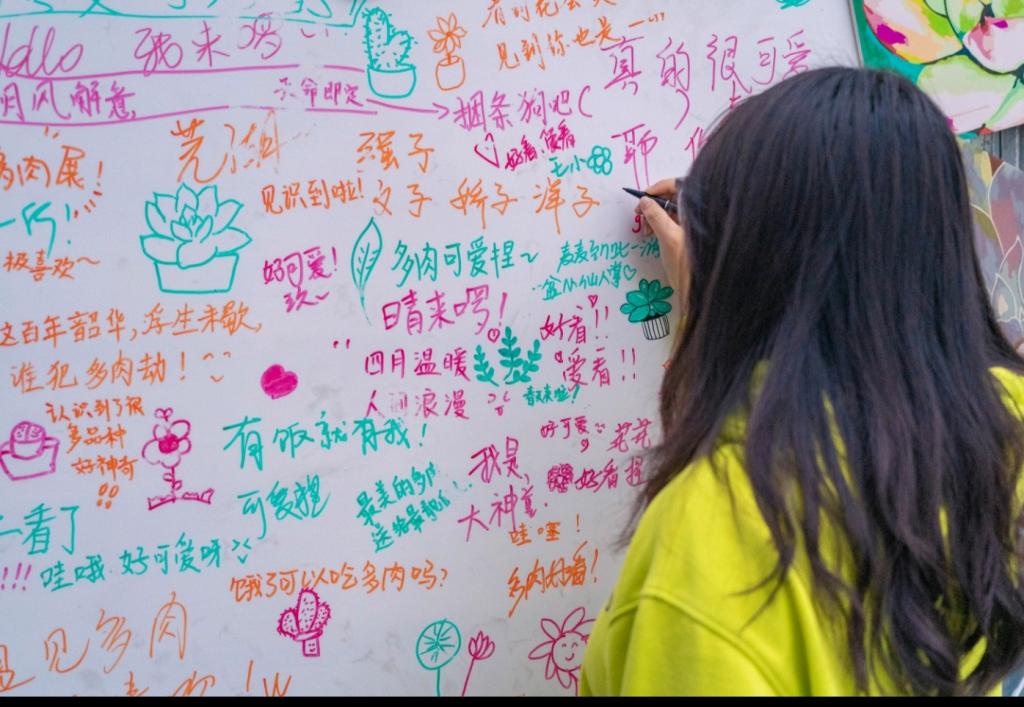 Hello 我来啰
看到花会笑
见到你也是
真的很可爱
明风解意
天命即定
捆条狗吧(
芜湖
强子
好看,爱看
毛小
多肉展!
见识到啦!
文子 娇子 洋子
极喜欢~
好可爱!
玩~
多肉可爱捏~
盆从仙人掌♡
晴来啰!
好看!!
这百年韶华,浮生未歇,
谁犯多肉劫!
四月温暖
爱看!!
人间浪漫
春天来啦!
认识到了很
多品种
好神奇
!!
有饭就有我!
好可爱
花花
我是
大神
好看捏
可爱捏
最美的多肉
送给最靓
一看了
哇塞!
!!! 哇哦 好可爱呀
饿了可以吃多肉吗?
多肉好看!
遇见多肉